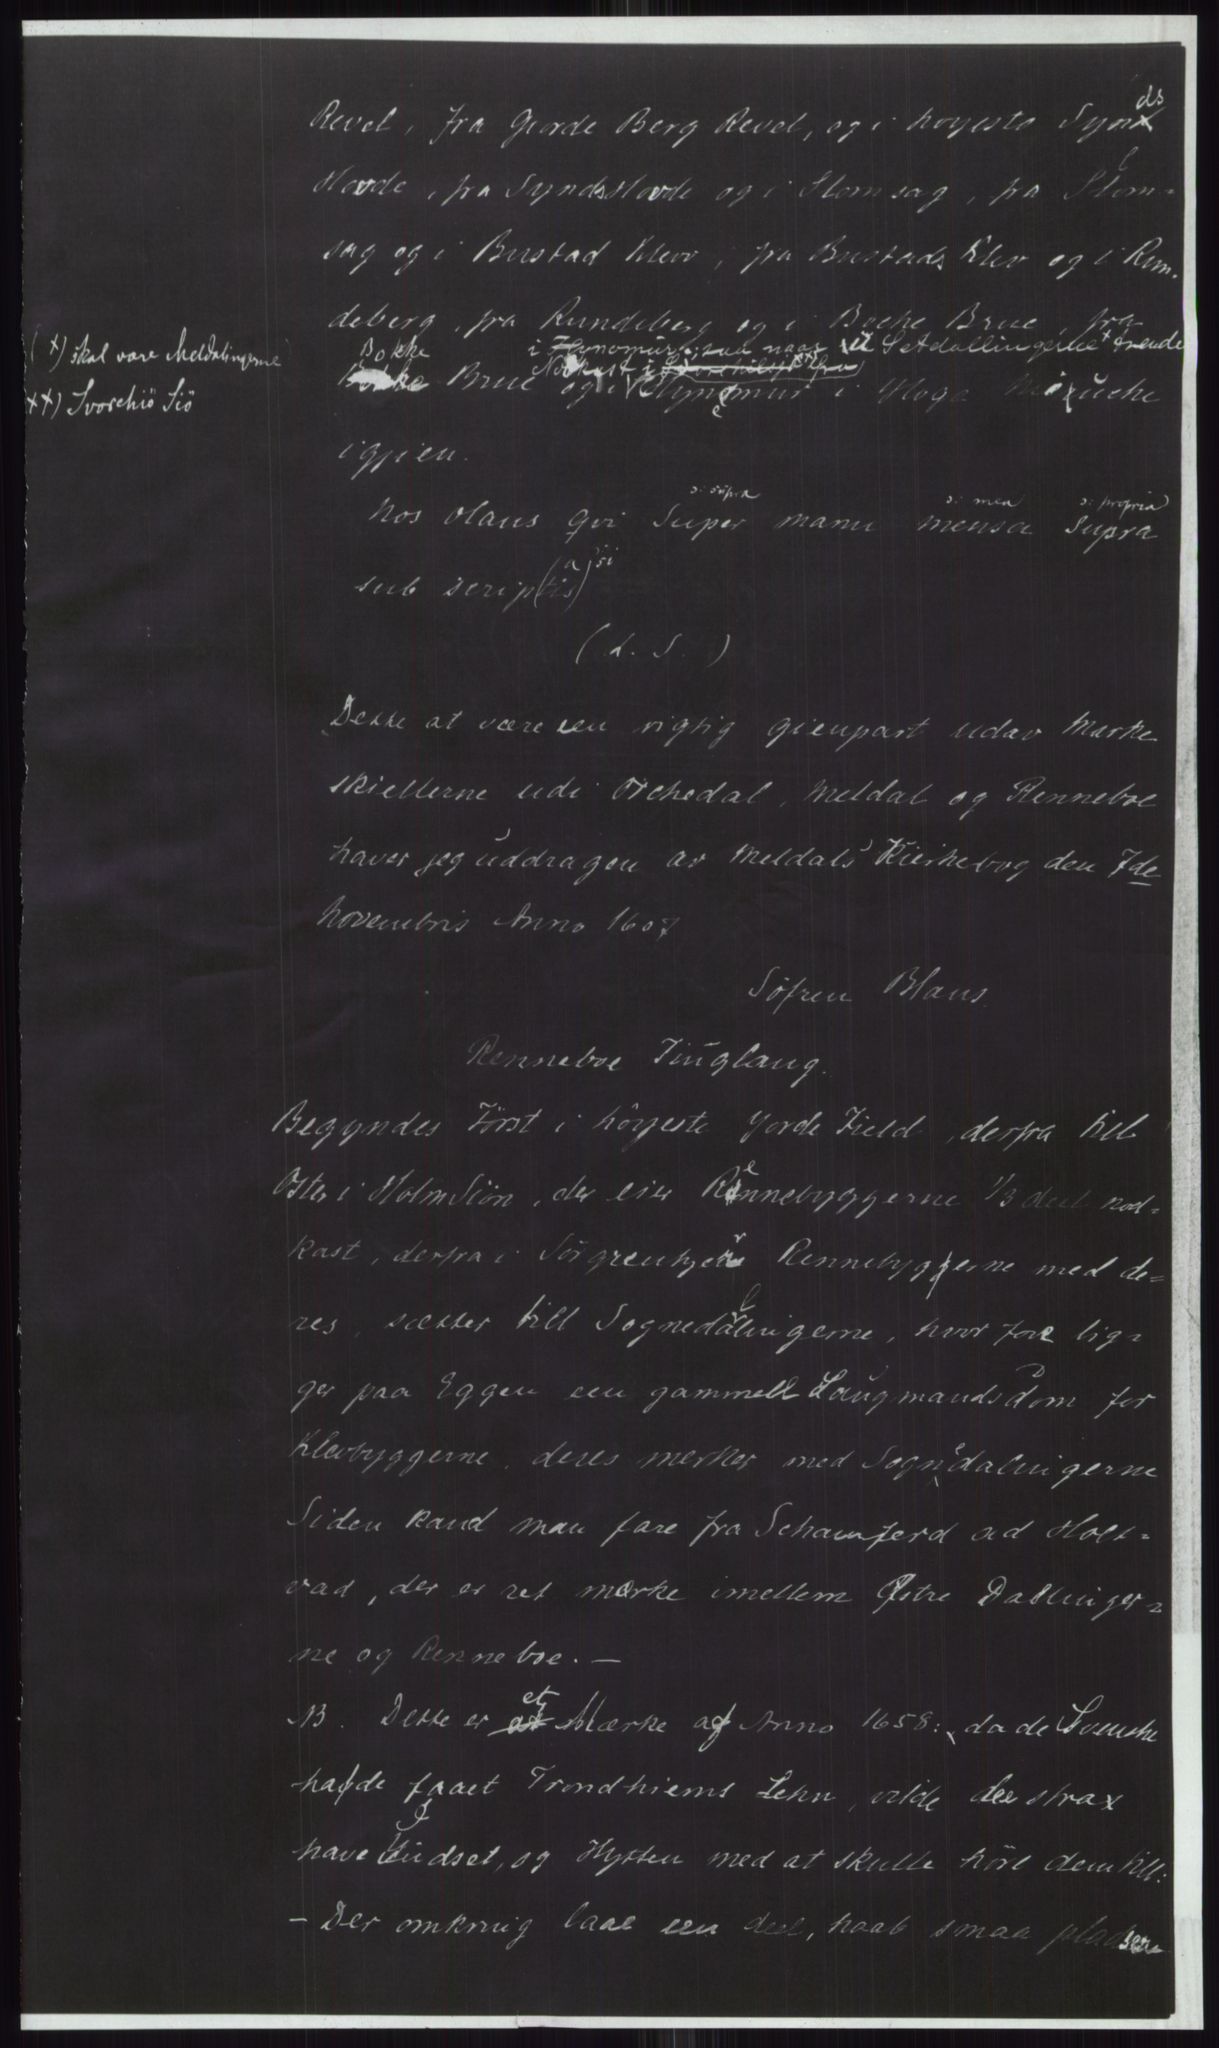 Revel, fra Giorde Berg Revel, og i høyeste Synds
Hovde, fra SyndsHovde og i Slomsag, fra Slom=
sag og i Bustad Klev, fra Bustads Klev og i Run-
deberg, fra Rundeberg og i Bocke Brue, fra
(+) skal være Meldalingerne
i naar
Bokke Brue og i i Høga
++) Svorchiö Siö
igjien.
Nos Olaus qvi Super manu mensa Supra
ɔ: süpra ɔ: mea ɔ: propria
sub scrip(tis)
(L. S.)
Dette at være een rigtig gienpart udav Merke
skiellerne udi Orchedal, Meldal og Renneboe
haver jeg üddragen av Meldals Kirkebog den 7de
Novembris Anno 1607
Söfren Blaus.
Renneboe Tinglaug.
Begyndes Först i höyeste Jorde Field, derfra till
Öster i HolmSiön, der eier Rennebyggerne 1/3 deel nod=
kast, derfra i Rennebyggerne med de=
res, sætter till Sognedalingerne, hvor fore lig=
ger paa Eggen een gammell Laugmands Dom for
Klevbyggerne, deres merker med Sognedalingerne
Siden kand man fare fra ad Holt=
vad, der er ret mærke imellem Østre Dallinger=
ne og Renneboe. —
NB. Dette er et Mærke af Anno 1658: da de Svenske
hafde faaet Trondhiems Lehn, vilde dee strax
have Indset, og Hytten med at skulle höre dem till:
— Der omkring laae een deel, haab smaa pladser